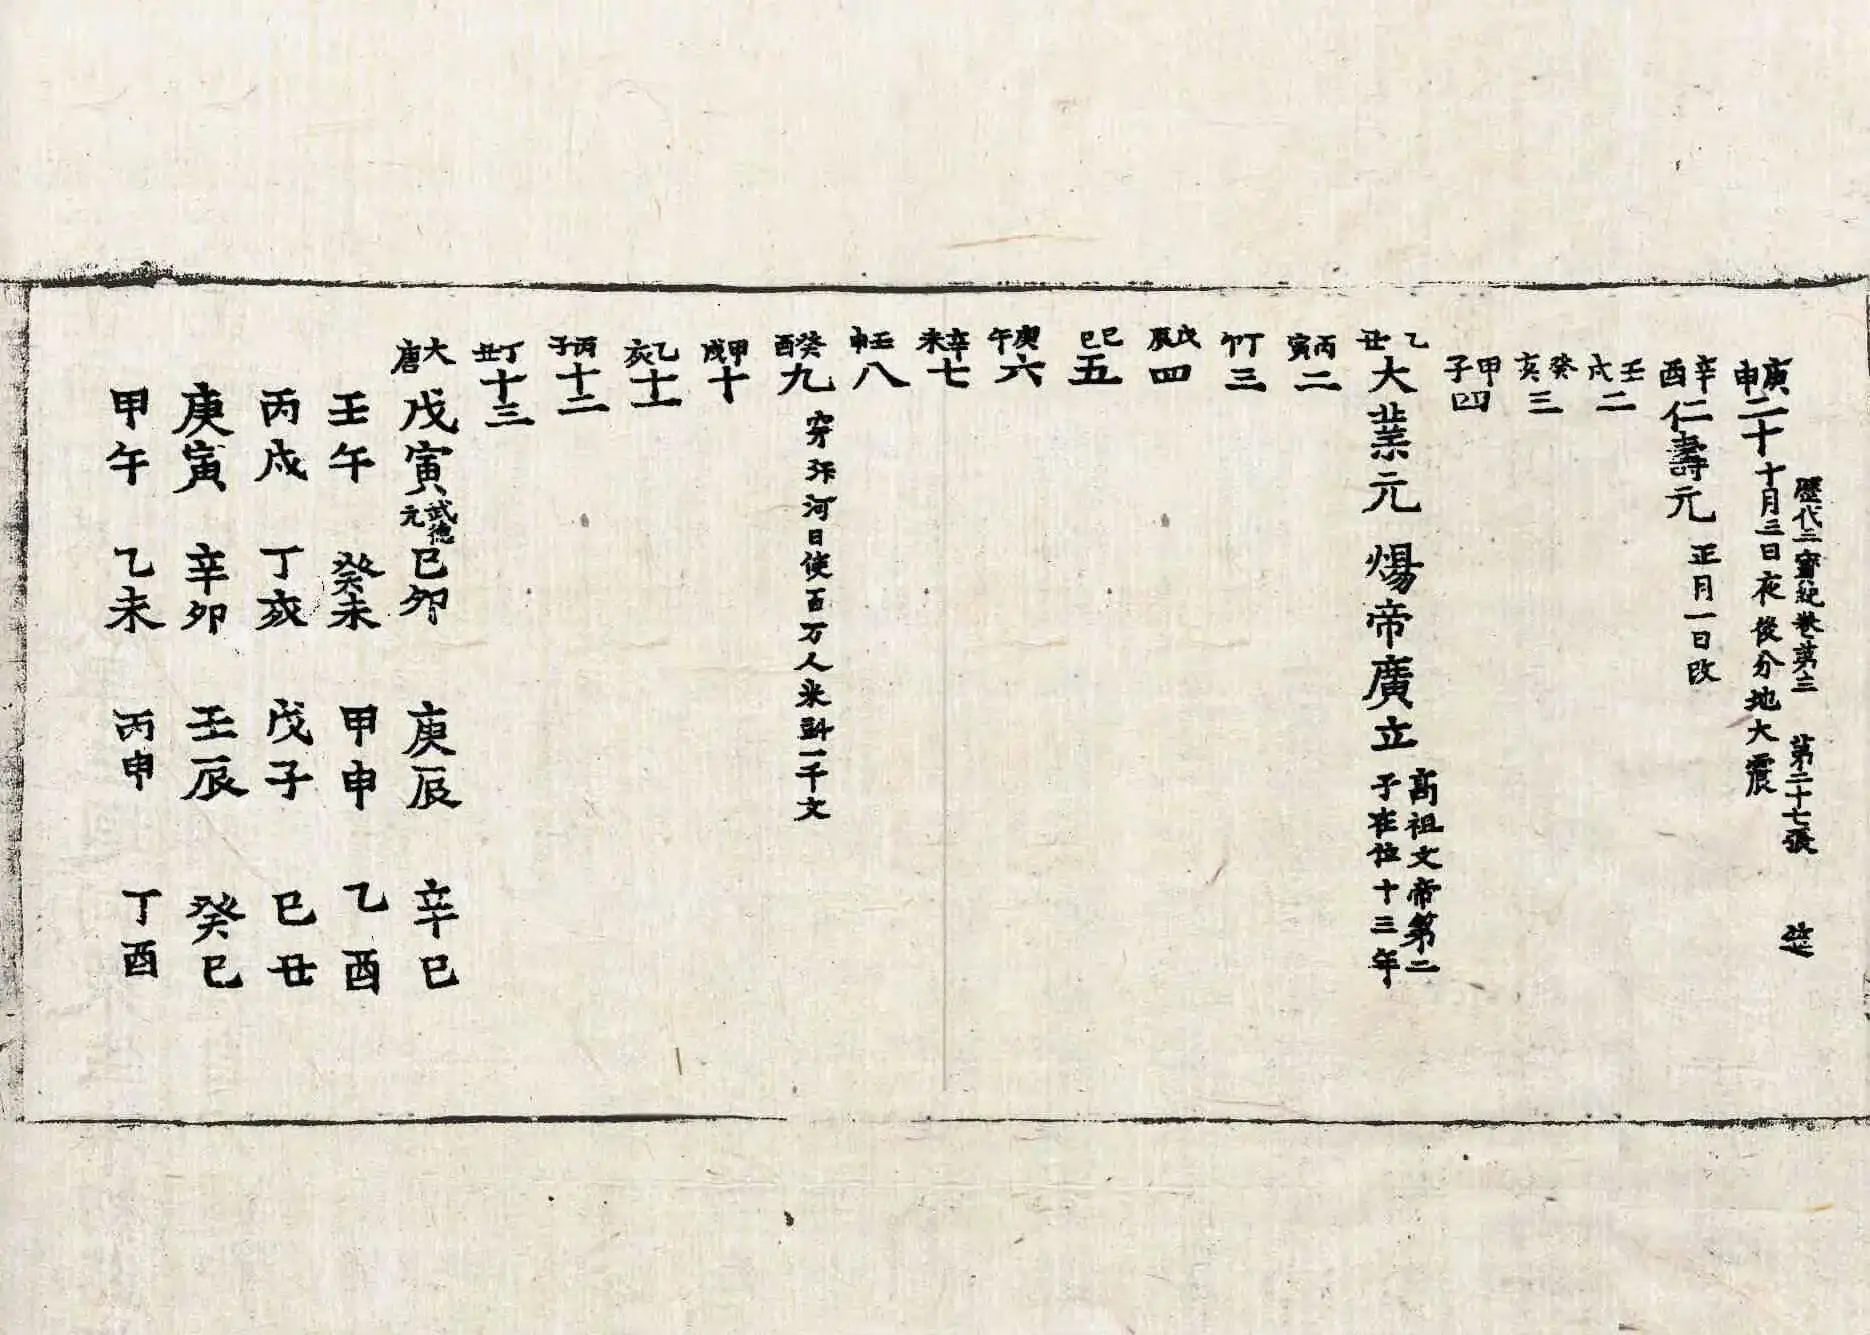 歷代三寶紀卷第三 第二十七張
庚申二十 十月三日夜後分地大震
辛酉仁壽元 正月一日改
壬戌二
癸亥三
甲子四
乙丑大業元 煬帝廣立 高祖文帝第二子在位十三年
丙寅二
丁卯三
戊辰四
己巳五
庚午六
辛未七
壬申八
癸酉九 穿汴河日使百万人米㪷一千文
甲戌十
乙亥十一
丙子十二
丁丑十三
大唐 戊寅武德元 己卯 庚辰 辛巳
壬午 癸未 甲申 乙酉
丙戌 丁亥 戊子 己丑
庚寅 辛卯 壬辰 癸巳
甲午 乙未 丙申 丁酉